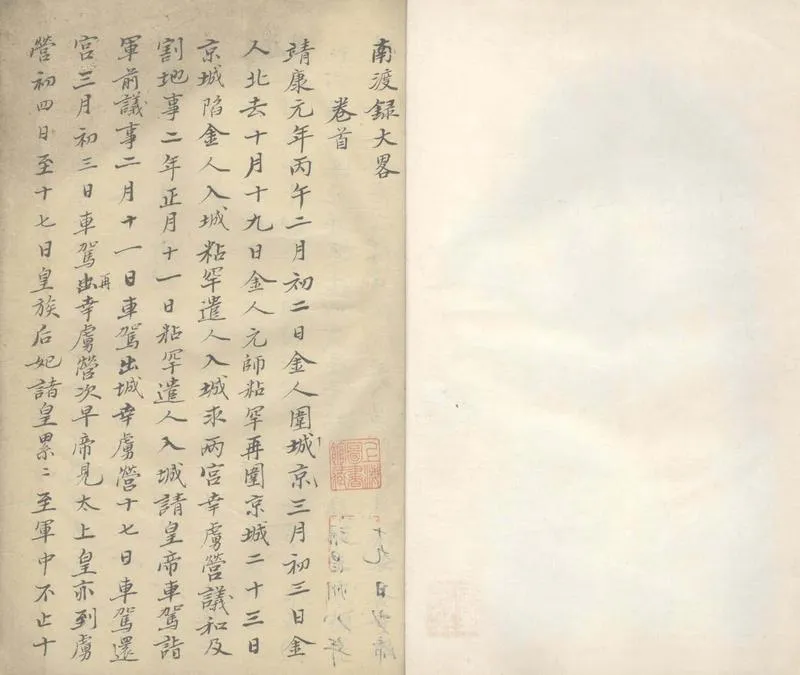 南渡録大畧
卷首
靖康元年丙午二月初二日金人圍城京三月初三日金
人北去十月十九日金人元師粘罕再圍京城二十三日
京城陷金人入城粘罕遣人入城求兩宮幸虜營議和及
割地事二年正月十一日粘罕遣人入城請皇帝車駕詣
軍前議事二月十一日車駕出城幸虜營十七日車駕還
宮三月初三日車駕出再幸虜營次早帝見太上皇亦到虜
營初四日至十七日皇族后妃諸皇累〻至軍中不止十
上海圖書館藏